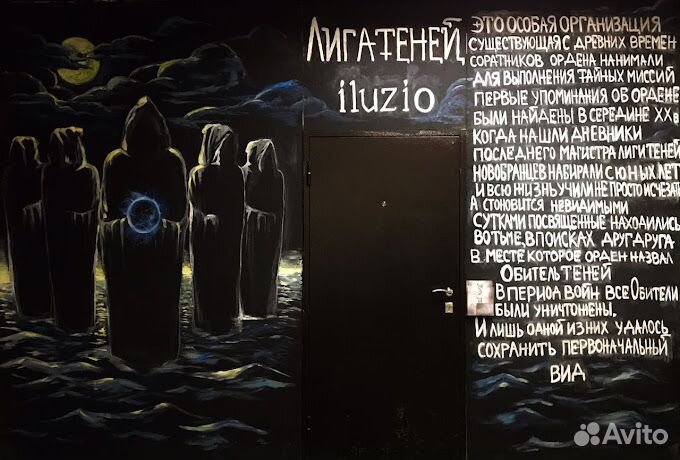 ЛИГА ТЕНЕЙ
iluzio
ЭТО ОСОБАЯ ОРГАНИЗАЦИЯ
СУЩЕСТВУЮЩАЯ С ДРЕВНИХ ВРЕМЕН
СОРАТНИКОВ ОРДЕНА НАНИМАЛИ
ДЛЯ ВЫПОЛНЕНИЯ ТАЙНЫХ МИССИЙ
ПЕРВЫЕ УПОМИНАНИЯ ОБ ОРДЕНЕ
БЫЛИ НАЙДЕНЫ В СЕРЕДИНЕ XX в
КОГДА НАШЛИ ДНЕВНИКИ
ПОСЛЕДНЕГО МАГИСТРА ЛИГИ ТЕНЕЙ
НОВОБРАНЦЕВ НАБИРАЛИ С ЮНЫХ ЛЕТ
И ВСЮ ЖИЗНЬ УЧИЛИ НЕ ПРОСТО ИСЧЕЗАТЬ
А СТОНОВИТСЯ НЕВИДИМЫМИ
СУТКАМИ ПОСВЯЩЕННЫЕ НАХОДИЛИСЬ
ВО ТЬМЕ, В ПОИСКАХ ДРУГ ДРУГА
В МЕСТЕ КОТОРОЕ ОРДЕН НАЗВАЛ
ОБИТЕЛЬ ТЕНЕЙ
В ПЕРИОД ВОЙН ВСЕ ОБИТЕЛИ
БЫЛИ УНИЧТОЖЕНЫ.
И ЛИШЬ ОДНОЙ ИЗ НИХ УДАЛОСЬ
СОХРАНИТЬ ПЕРВОНАЧАЛЬНЫЙ
ВИД
Avito